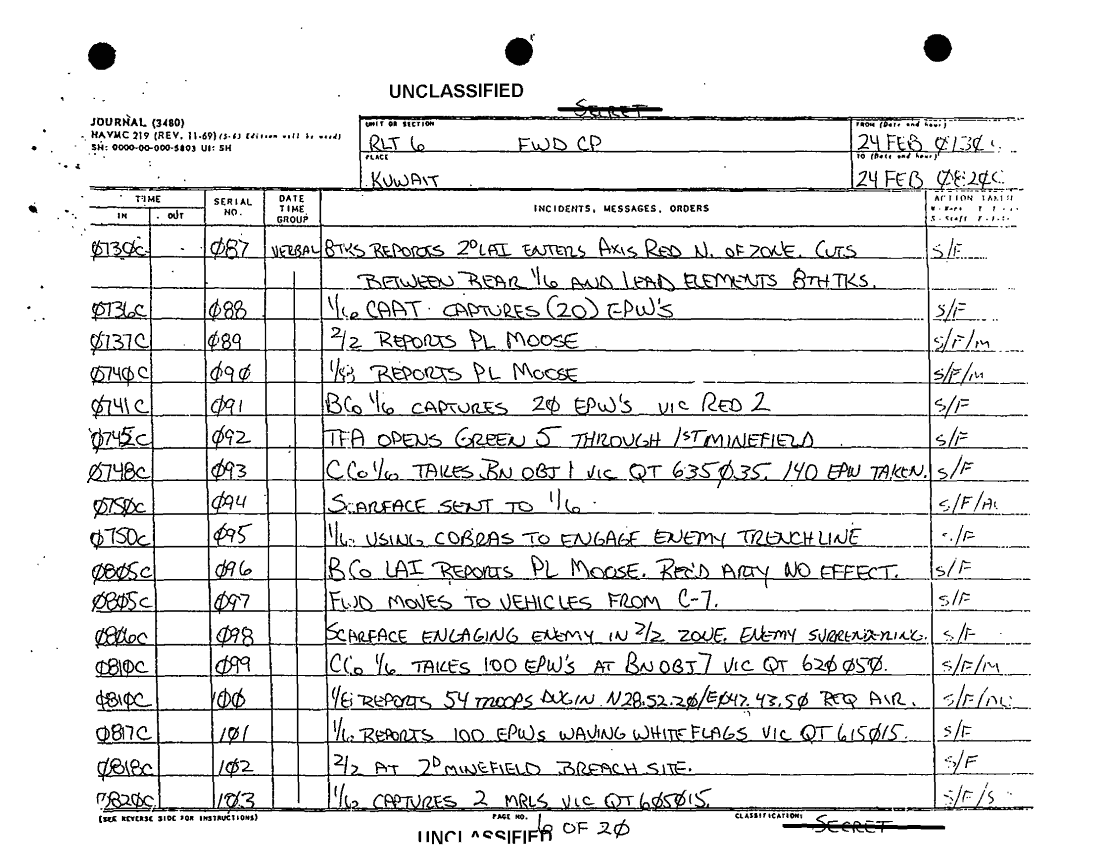 UNCLASSIFIED
SECRET
JOURNAL (3480)
NAVMC 219 (REV. 11-69) (5-63 Edition will be used)
SN: 0000-00-000-5803 UI: SH
UNIT OR SECTION
RLT 6 FWD CP
FROM (Date and hour)
24 FEB Ø13Ø
PLACE
KUWAIT
TO (Date and hour)
24 FEB Ø82ØC
TIME
IN OUT
SERIAL NO.
DATE TIME GROUP
INCIDENTS, MESSAGES, ORDERS
ACTION TAKEN
Ø73ØC Ø87 VERBAL 8TKS REPORTS 2ᴰ LAI ENTERS AXIS RED N. OF ZONE. CUTS S/F
BETWEEN REAR 1/6 AND LEAD ELEMENTS 8THTKS.
Ø736C Ø88 1/6 CAAT CAPTURES (20) EPW'S S/F
Ø737C Ø89 2/2 REPORTS PL MOOSE S/F/M
Ø74ØC Ø9Ø REPORTS PL MOOSE S/F/M
Ø741C Ø91 BCo 1/6 CAPTURES 2Ø EPW'S VIC RED 2 S/F
Ø745C Ø92 TFA OPENS GREEN 5 THROUGH 1ST MINEFIELD S/F
Ø748C Ø93 CCo 1/6 TAKES BN OBJ 1 VIC QT 635Ø35. 140 EPW TAKEN. S/F
Ø75ØC Ø94 SCARFACE SENT TO 1/6 S/F/
Ø75ØC Ø95 1/6 USING COBRAS TO ENGAGE ENEMY TRENCHLINE /F
Ø8Ø5C Ø96 B CO LAI REPORTS PL MOOSE. REC'D ARTY NO EFFECT. S/F
Ø8Ø5C Ø97 FWD MOVES TO VEHICLES FROM C-7. S/F
Ø8Ø6C Ø98 SCARFACE ENGAGING ENEMY IN 2/2 ZONE. ENEMY SURRENDERING. S/F
Ø81ØC Ø99 CCo 1/6 TAKES 100 EPW'S AT BN OBJ 7 VIC QT 62Ø Ø5Ø. S/F/M
Ø81ØC 1ØØ REPORTS 54 TROOPS DUG IN N28.52.2Ø/EØ47.43.5Ø REQ AIR. S/F/
Ø817C 1Ø1 1/6 REPORTS 100 EPWS WAVING WHITE FLAGS VIC QT 615Ø15. S/F
Ø818C 1Ø2 2/2 AT 2ᴰ MINEFIELD BREACH SITE. S/F
Ø82ØC 1Ø3 1/6 CAPTURES 2 MRLS VIC QT 6Ø5Ø15. S/F/S
(SEE REVERSE SIDE FOR INSTRUCTIONS)
PAGE NO.
6 OF 2Ø
CLASSIFICATION:
SECRET
UNCLASSIFIED